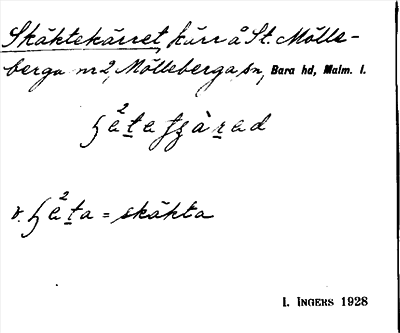 Skäktekärret, kärr å St. Mölle-
berga nr 2, Mölleberga sn, Bara hd, Malm. l.
v. = skäkta
I. INGERS 1928